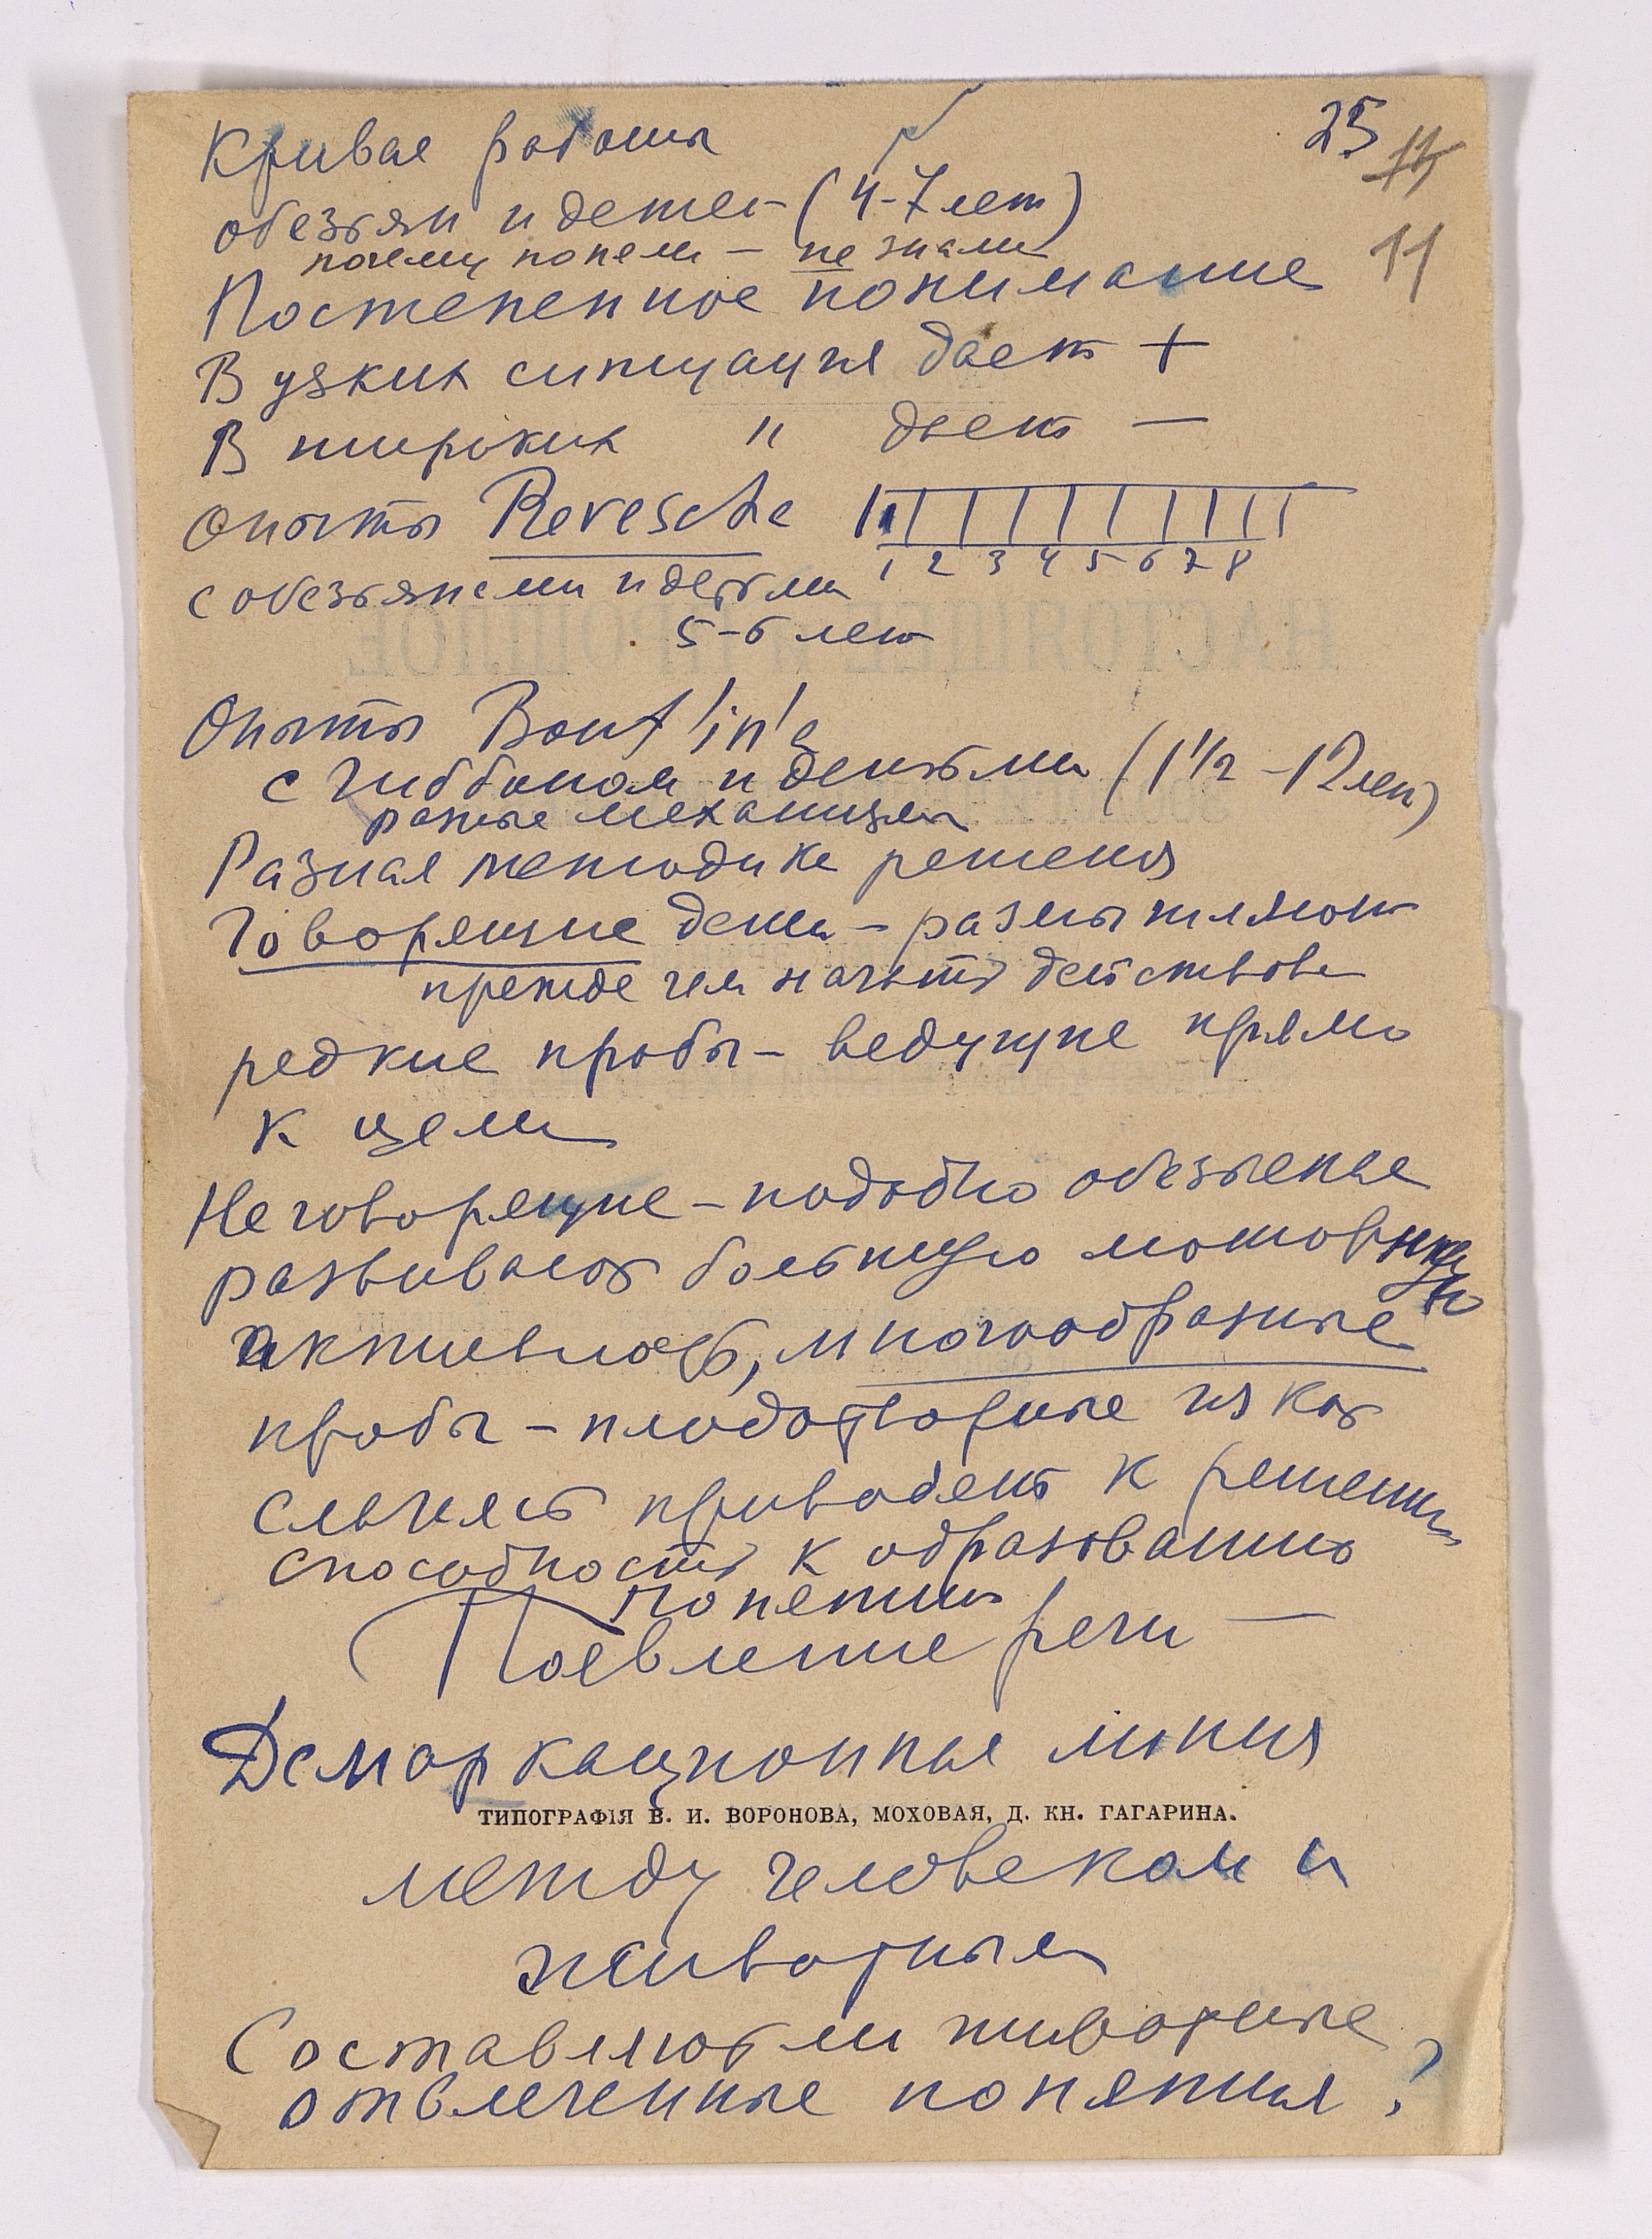 25
11
Кривая работы
обезьян и детей (4-7 лет)
почему поняли — не знали
Постепенное понимание
В узких ситуация дает +
В широких " дает —
Опыты Revesche
1 2 3 4 5 6 7 8
с обезьянами и детьми
5-6 лет
Опыты Bout'in'a
с гиббоном и детьми (1 1/2 - 12 лет)
разные механизмы
Разная методика решения
Говорящие дети - размышляют
прежде чем начать действова
редкие пробы - ведущие прямо
к цели
Не говорящие - подобно обезьяне
развивают большую моторную
активность, многообразные
пробы - плодотворные из них
случает приводят к решению
способность к образованию
понятий
Появление речи —
Демаркационная линия
ТИПОГРАФІЯ В. И. ВОРОНОВА, МОХОВАЯ, Д. КН. ГАГАРИНА.
между человеком и
животным
Составляют ли животные
отвлеченные понятия?